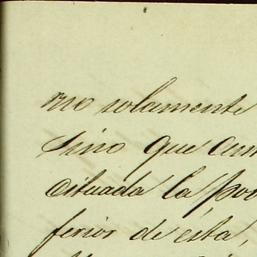 no solamente
sino que aun
situada la po
ferior de esta,